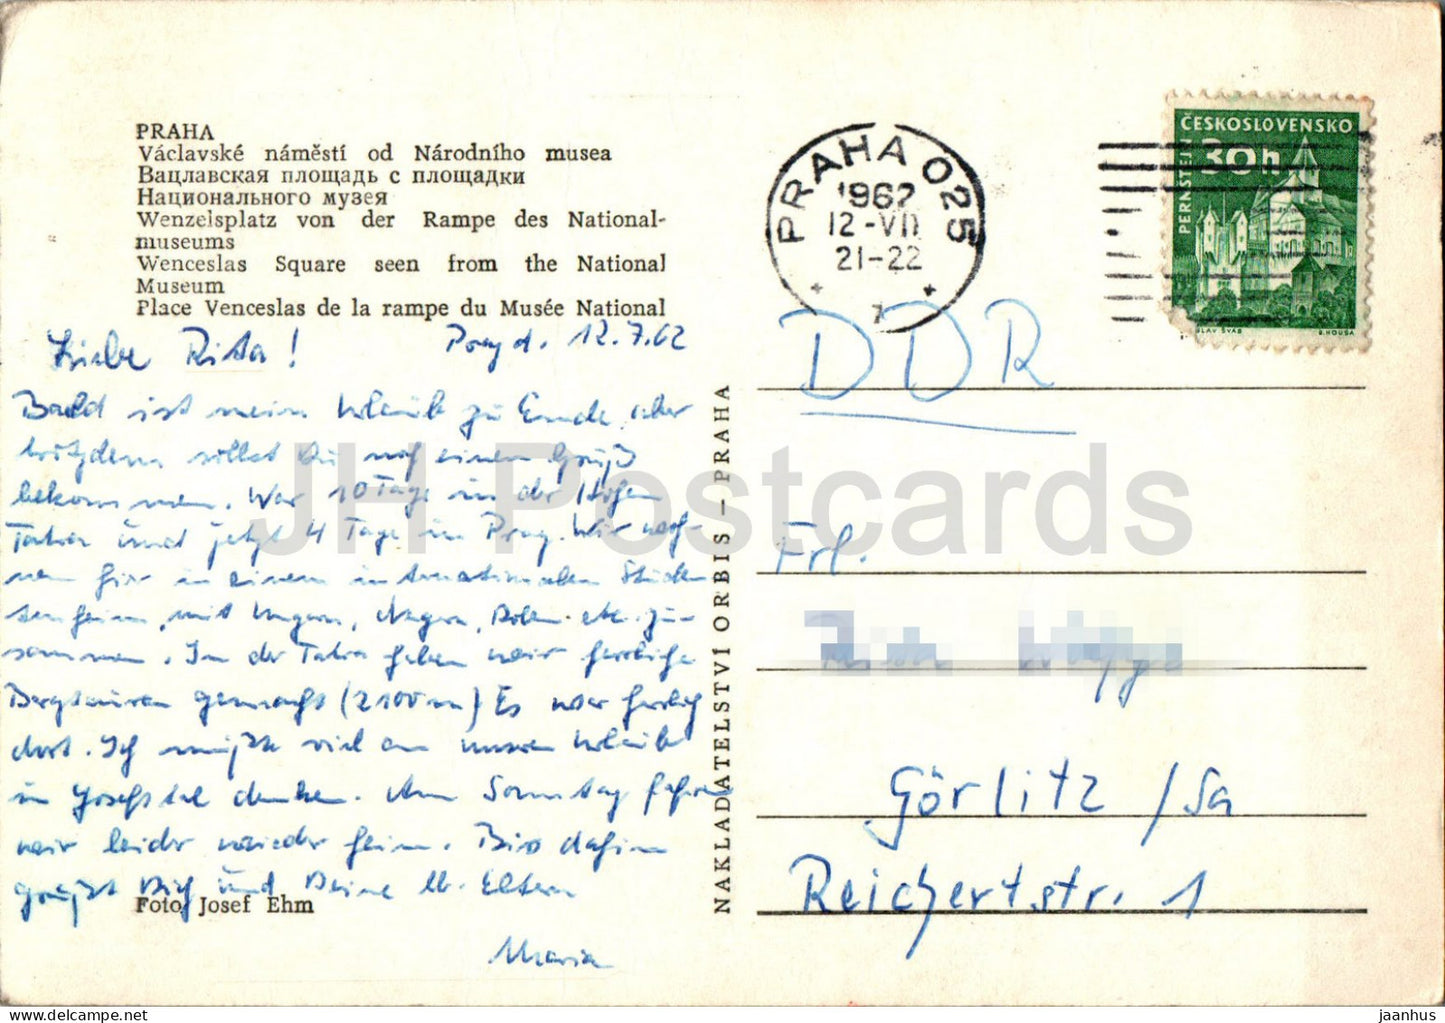 PRAHA
Václavské náměstí od Národního musea
Вацлавская площадь с площадки
Национального музея
Wenzelsplatz von der Rampe des National-
museums
Wenceslas Square seen from the National
Museum
Place Venceslas de la rampe du Musée National
Liebe Rita! Prag d. 12.7.62
Bald ist mein Urlaub zu Ende, aber
trotzdem sollst Du noch einen Gruß
bekommen. War 10 Tage in der Hohen
Tatra und jetzt 4 Tage in Prag. Wir woh-
nen hier in einem internationalen Studen
tenheim, mit Ungarn, Negern, Polen etc. zu-
sammen. In der Tatra haben wir herrliche
Bergtouren gemacht (2100m) Es war herrlich
dort. Ich mußte viel an unseren Urlaub
in Josefstal denken. Am Sonntag fahren
wir leider wieder heim. Bis dahin
grüßt Dich und Deine lb. Eltern
Maria
Foto Josef Ehm
NAKLADATELSTVÍ ORBIS – PRAHA
PRAHA 025
1962
12-VII
21-22
7
ČESKOSLOVENSKO
30h
PERNŠTEJN
SLAV ŠVAB
B. HOUSA
DDR
Frl.
Görlitz /Sa
Reichertstr. 1
JH Postcards
delcampe.net
jaanhus